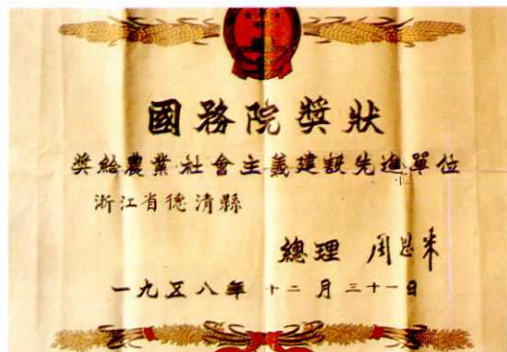 國務院獎狀
獎給農業社會主義建設先進單位
浙江省德清縣
總理 周恩来
一九五八年 十二月三十一日